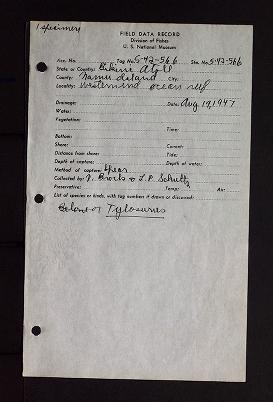 1 specimen
FIELD DATA RECORD
Division of Fishes
U. S. National Museum
Acc. No. Tag No. S-42-566 Sta. No. S-42-566
State or Country: Bikini Atoll
County: Namu Island City:
Locality: Western end ocean reef
Drainage: Date: Aug 19, 1947
Water:
Vegetation:
Time:
Bottom:
Shore: Current:
Distance from shore: Tide:
Depth of capture: Depth of water:
Method of capture: Spear
Collected by: V. Brock & L. P. Schultz
Preservative: Temp: Air
List of species or kinds, with tag numbers if drawn or discussed:
Belone or Tylosurus